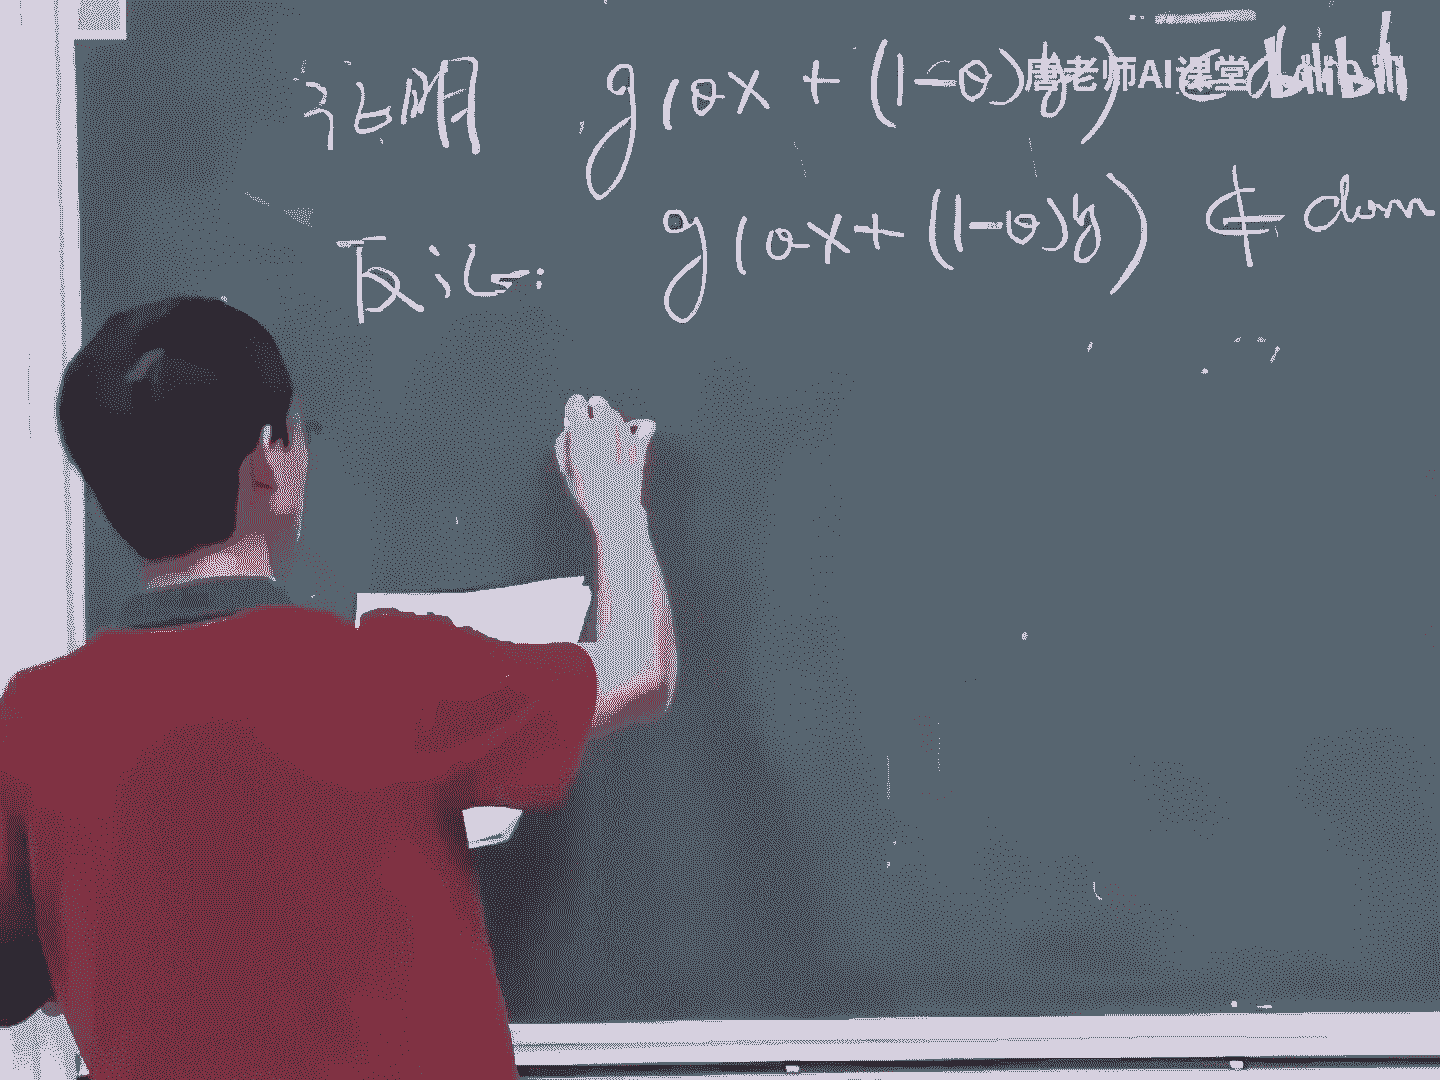 证明 g(θx + (1-θ)y) ∈ dom
唐老师AI课堂 bilibili
反证: g(θx + (1-θ)y) ∉ dom